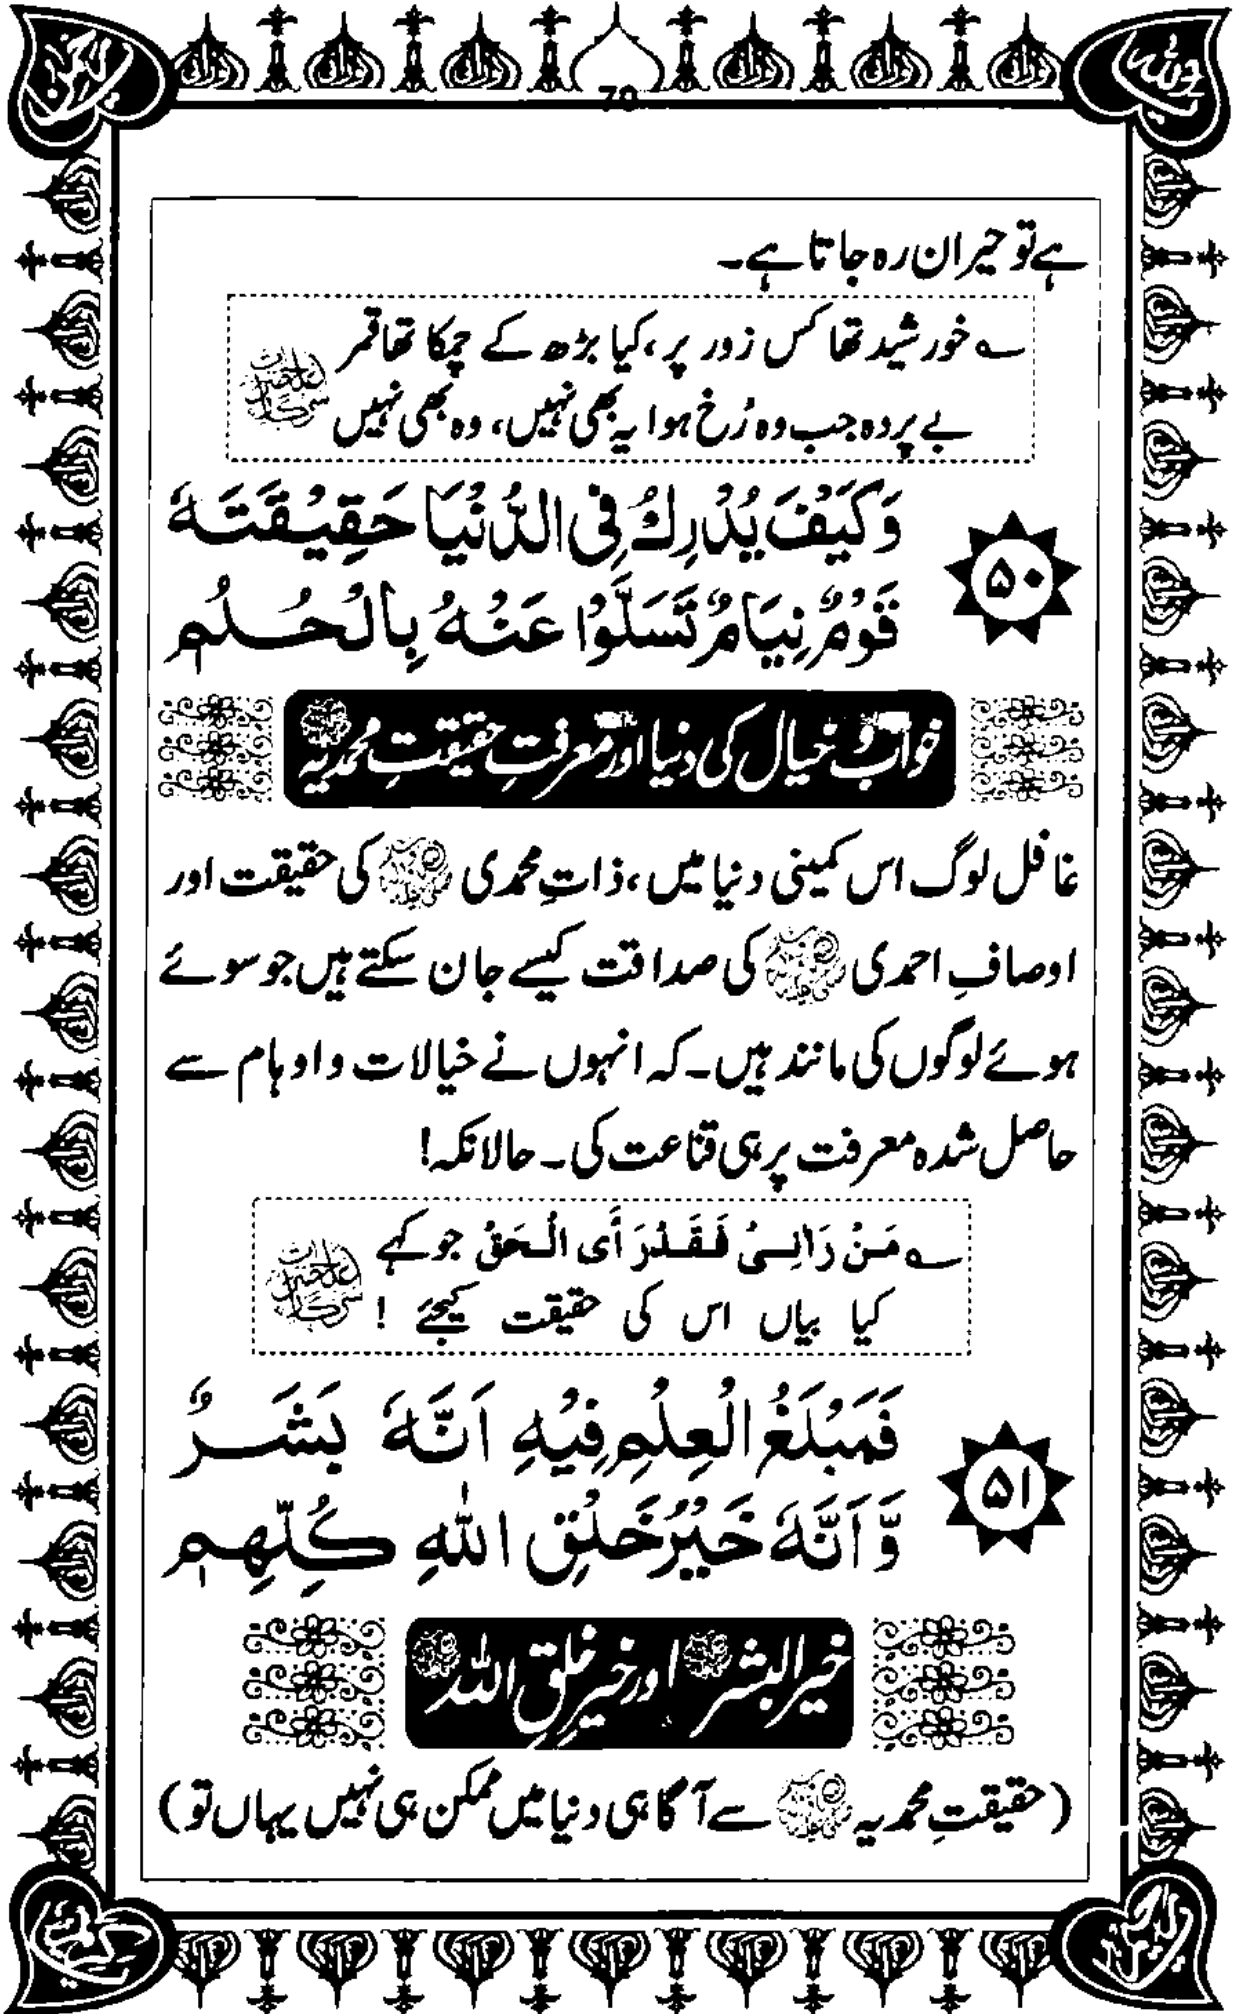 70
ہے تو حیران رہ جاتا ہے۔
؎ خورشید تھا کس زور پر، کیا بڑھ کے چمکا تھا قمر
بے پردہ جب وہ رُخ ہوا یہ بھی نہیں، وہ بھی نہیں
وَكَيْفَ يُدْرِكُ فِي الدُّنْيَا حَقِيْقَتَهٗ
قَوْمٌ نِيَامٌ تَسَلَّوْا عَنْهُ بِالْحُلُمِ
۵۰
خواب و خیال کی دنیا اور معرفتِ حقیقتِ محمدیہ ﷺ
غافل لوگ اس کمینی دنیا میں، ذاتِ محمدی ﷺ کی حقیقت اور
اوصافِ احمدی ﷺ کی صداقت کیسے جان سکتے ہیں جو سوئے
ہوئے لوگوں کی مانند ہیں۔ کہ انہوں نے خیالات و اوہام سے
حاصل شدہ معرفت پر ہی قناعت کی۔ حالانکہ!
؎ مَنْ رَاٰنِیْ فَقَدْ رَأَی الْحَقَّ جو کہے
کیا بیاں اس کی حقیقت کیجئے !
فَمَبْلَغُ الْعِلْمِ فِيْهِ اَنَّهٗ بَشَرٌ
وَّاَنَّهٗ خَيْرُ خَلْقِ اللّٰهِ كُلِّهِمِ
۵۱
خیر البشر ﷺ اور خیرِ خلقِ اللہ ﷺ
(حقیقتِ محمدیہ ﷺ سے آگاہی دنیا میں ممکن ہی نہیں یہاں تو)